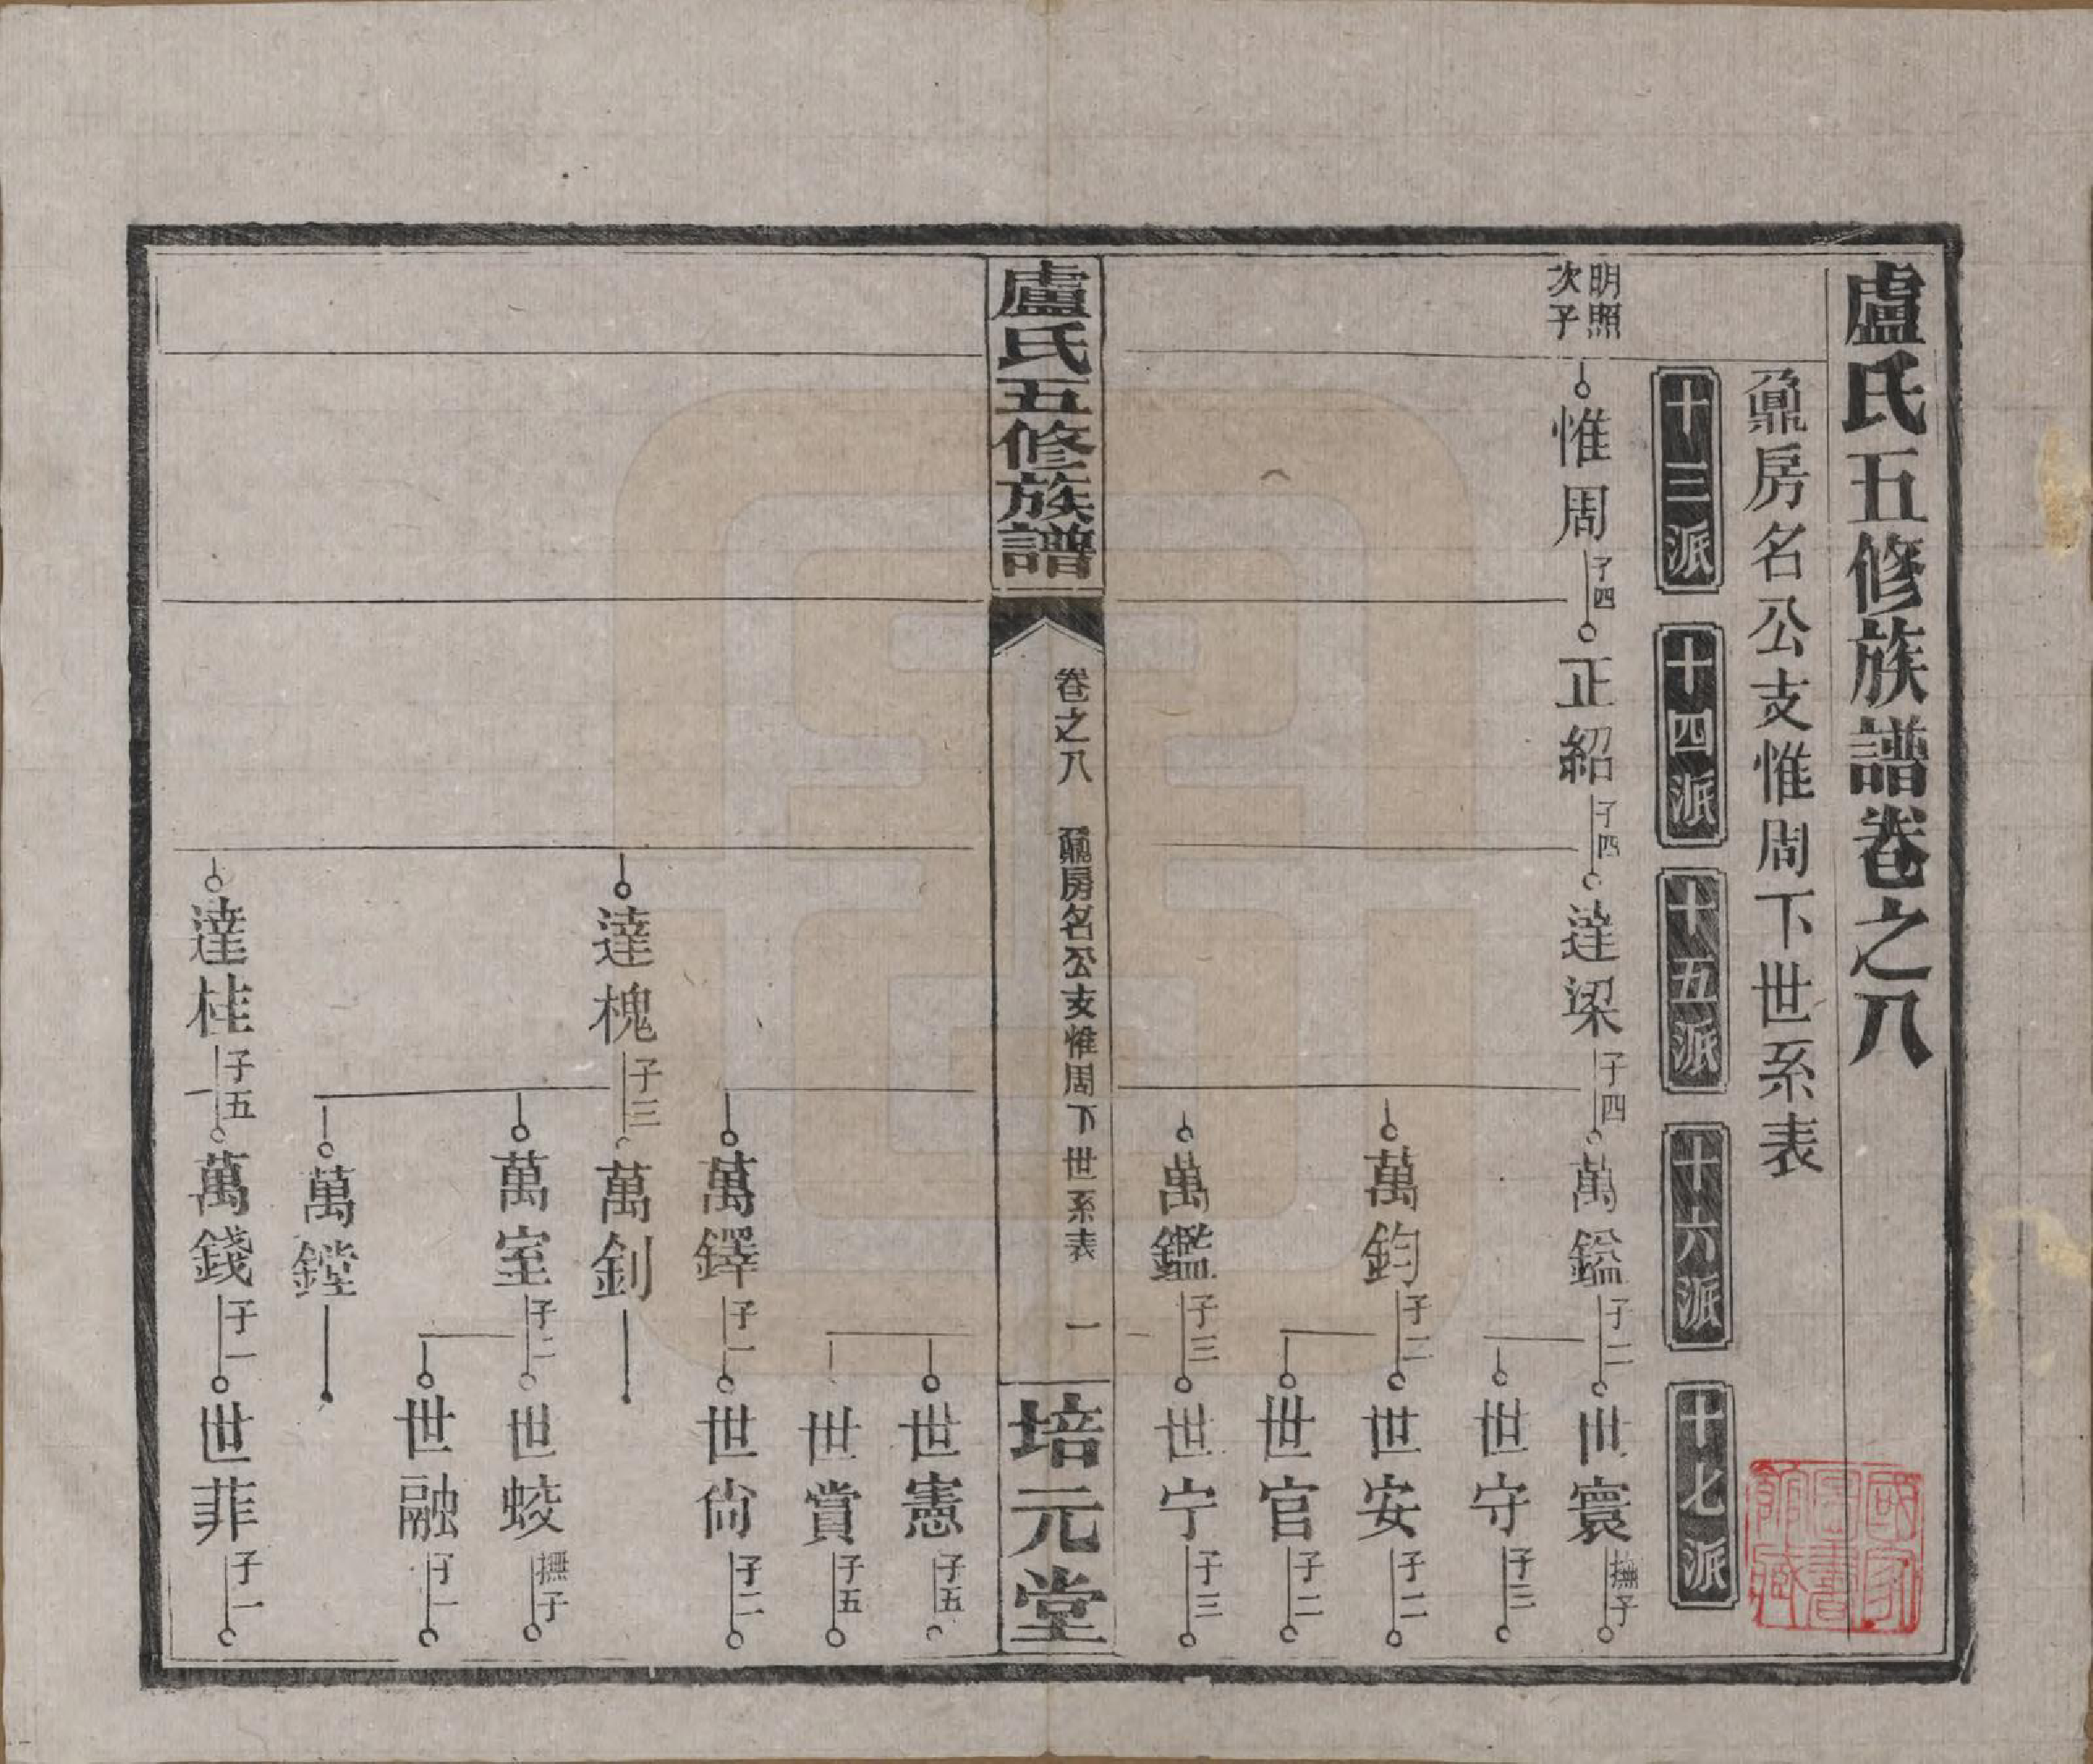 盧氏五修族譜卷之八
鼐房名公支惟周下世系表
十三派
十四派
十五派
十六派
十七派
明照
次子
惟周
子四
正紹
子四
達梁
子四
萬鎰
子二
世寰
撫子
世守
子三
萬鈞
子二
世安
子二
世官
子二
萬鑑
子三
世宁
子三
盧氏五修族譜
卷之八
鼐房名公支惟周下世系表
一
培元堂
世憲
子五
世賞
子五
萬鐸
子一
世尙
子二
達槐
子三
萬釗
萬室
子二
世蛟
撫子
世融
子一
萬鏜
達桂
子五
萬錢
子一
世菲
子一
國家圖書館藏